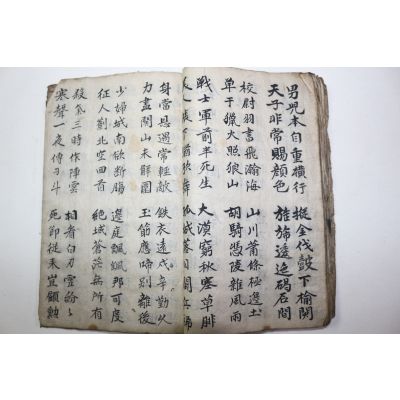 男兒本自重橫行
天子非常賜顔色
摐金伐皷下榆関
旌旆逶迤碣石間
校尉羽書飛瀚海
單于獵火照狼山
山川蕭條極邊土
胡騎憑陵雜風雨
戰士軍前半死生
人帳下猶歌舞
大漠窮秋塞草腓
孤城落日鬪兵稀
身當恩遇常輕敵
力盡関山未解圍
鐵衣遠戍辛勤久
玉筯應啼別離後
少婦城南欲斷腸
征人薊北空回首
邊庭飄颻那可度
絶域蒼茫無所有
殺氣三時作陣雲
寒聲一夜傳刁斗
相看白刃血紛〻
死節從來豈顧勳